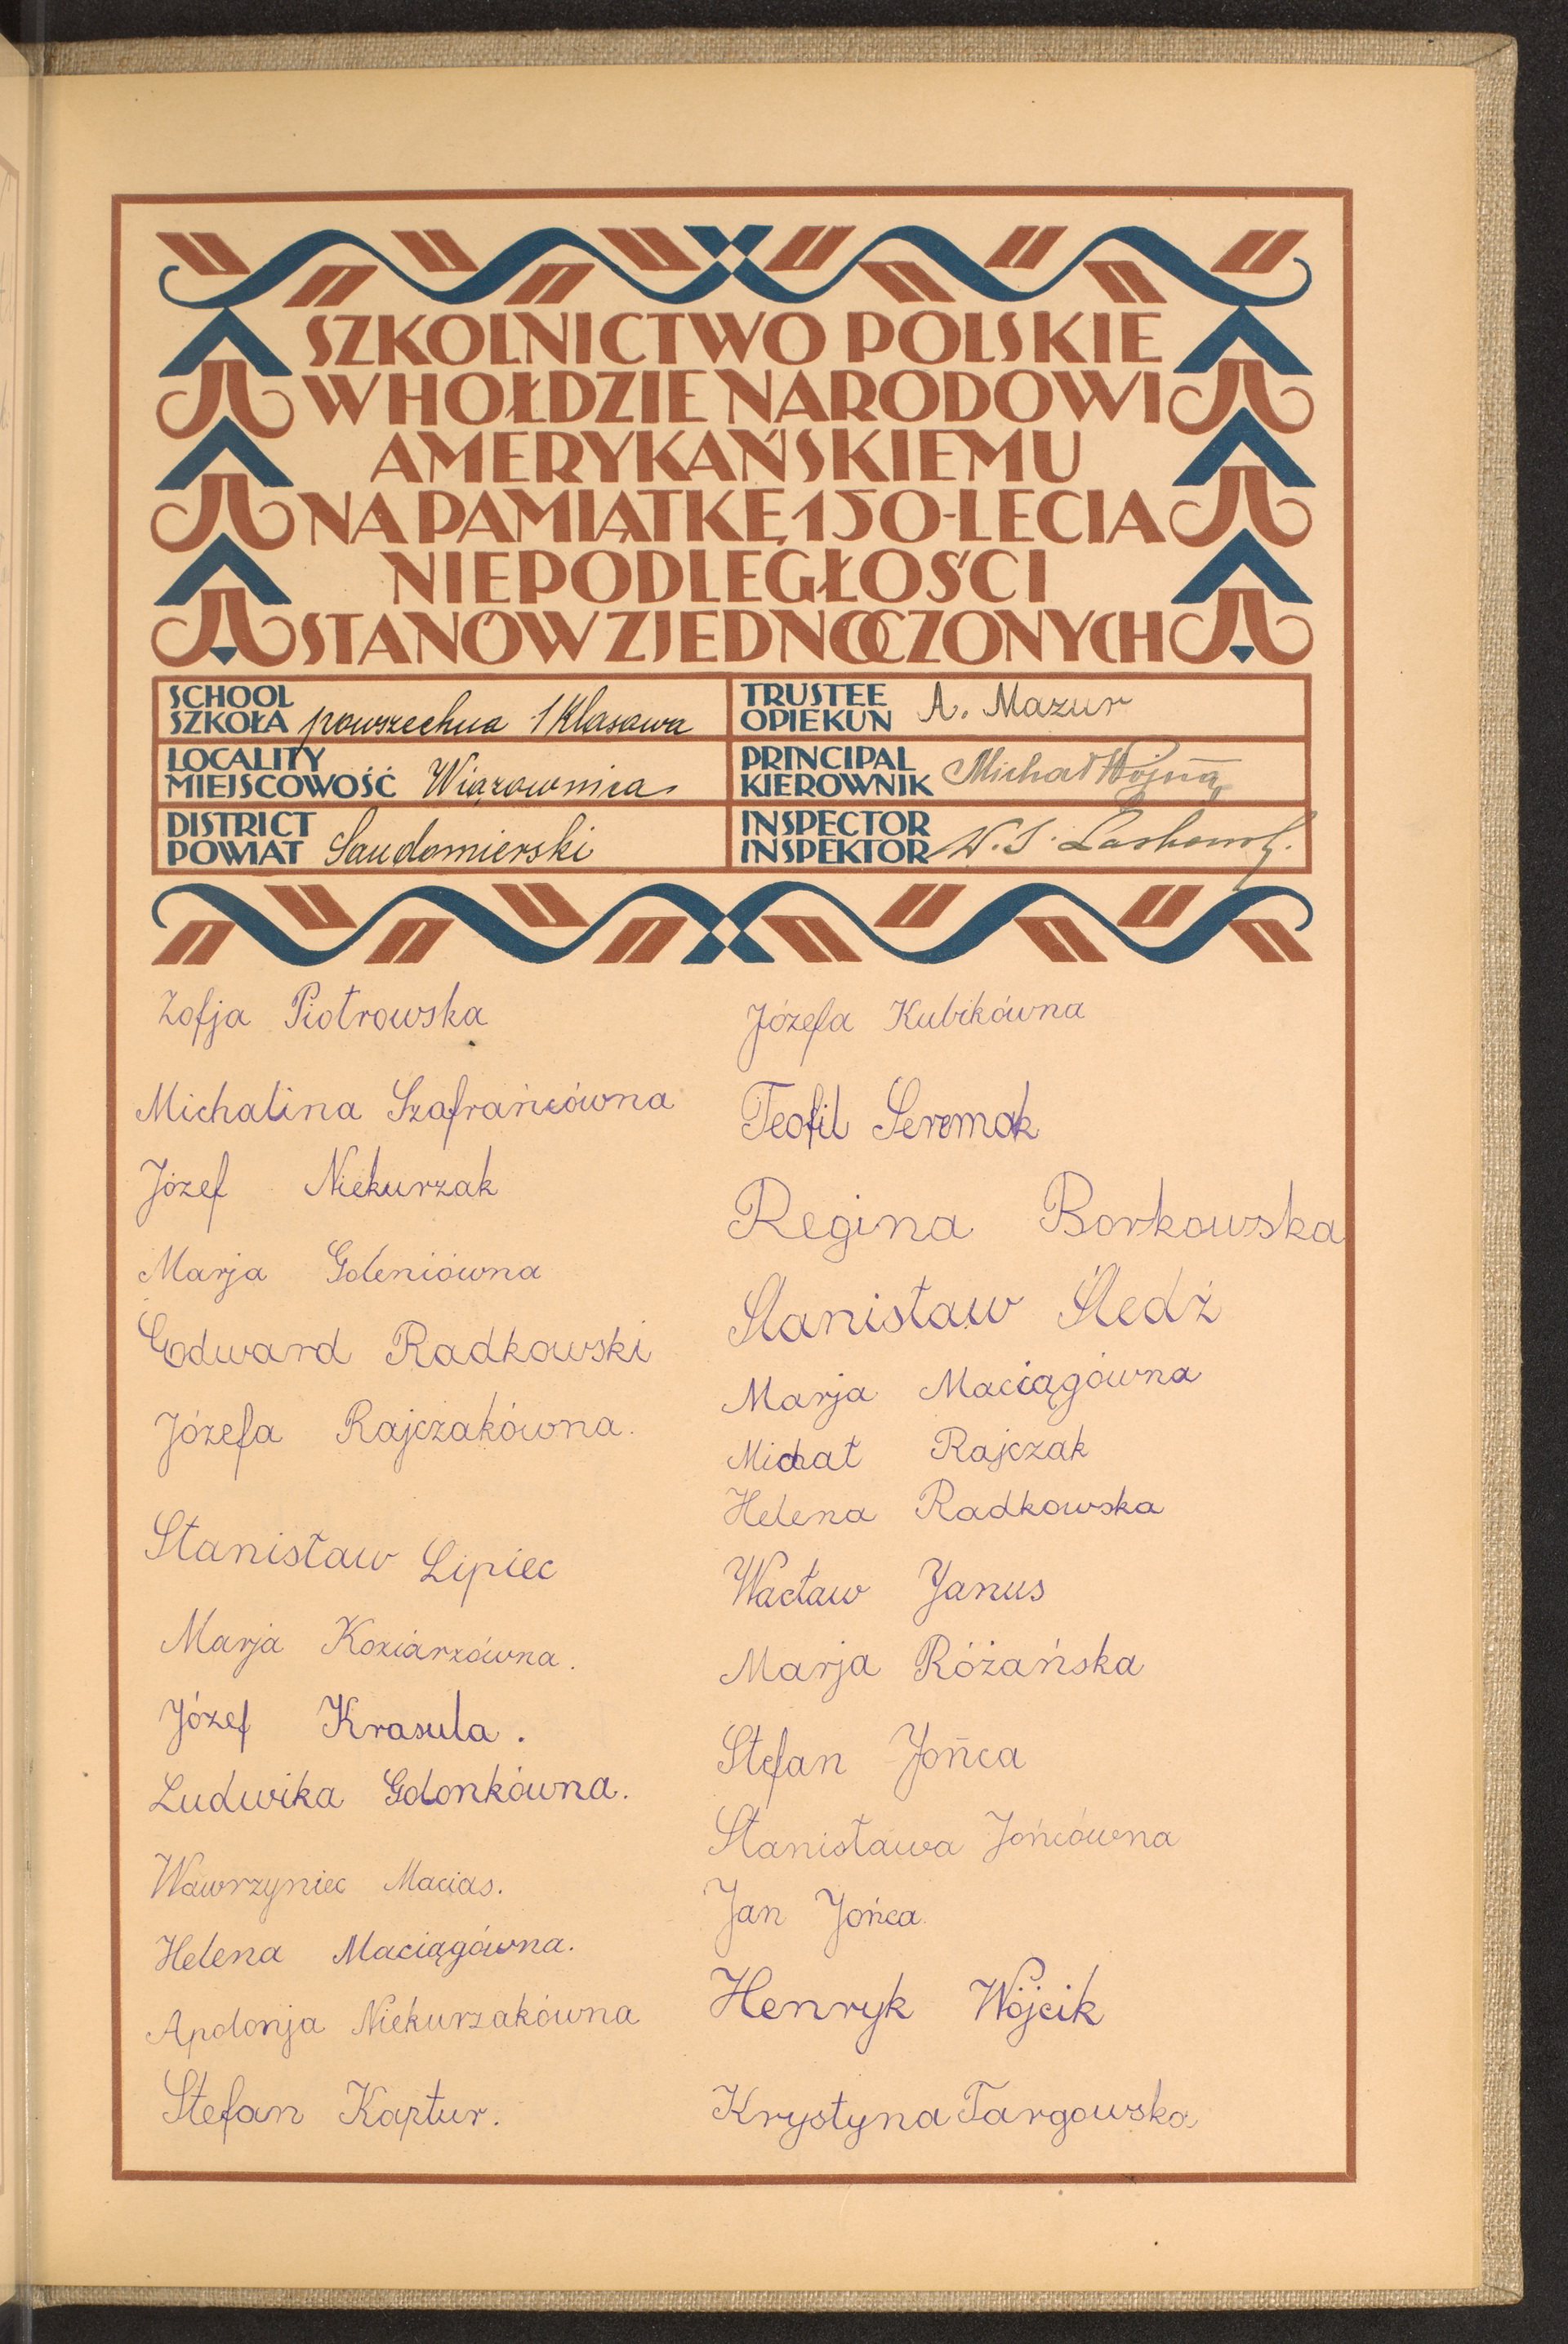 SZKOLNICTWO POLSKIE
W HOŁDZIE NARODOWI
AMERYKAŃSKIEMU
NA PAMIĄTKĘ 150-LECIA
NIEPODLEGŁOŚCI
STANÓW ZJEDNOCZONYCH
SCHOOL
SZKOŁA powszechna 1 Klasowa
TRUSTEE
OPIEKUN A. Mazur
LOCALITY
MIEJSCOWOŚĆ Wiązownica
PRINCIPAL
KIEROWNIK Michał Wojna
DISTRICT
POWIAT Sandomierski
INSPECTOR
INSPEKTOR
Zofja Piotrowska
Michalina Szafrańcówna
Józef Niekurzak
Marja Goleniówna
Edward Radkowski
Józefa Rajczakówna.
Stanisław Lipiec
Marja Koziarzówna.
Józef Krasula.
Ludwika Golonkówna.
Wawrzyniec Macias.
Helena Maciągówna.
Apolonja Niekurzakówna
Stefan Kaptur.
Józefa Kubikówna
Teofil Seremak
Regina Borkowska
Stanisław Śledź
Marja Maciągówna
Michał Rajczak
Helena Radkowska
Wacław Janus
Marja Różańska
Stefan Jońca
Stanisława Jońcówna
Jan Jońca
Henryk Wójcik
Krystyna Targowska